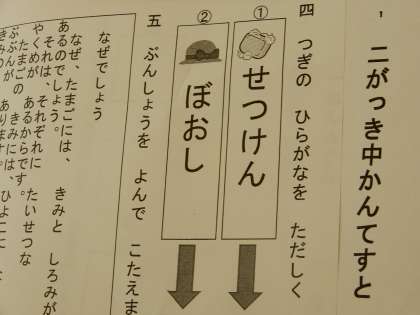 二がっき中かんてすと
四 つぎの ひらがなを ただしく
① せつけん
② ぼおし
五 ぶんしょうを よんで こたえま
なぜでしょう
なぜ、たまごには、 きみと しろみが
あるのでしょう。
それは、 それぞれに たいせつな
やくめが あるからです。
たまごの きみには、 ひよこに
ぶぶんが あります。